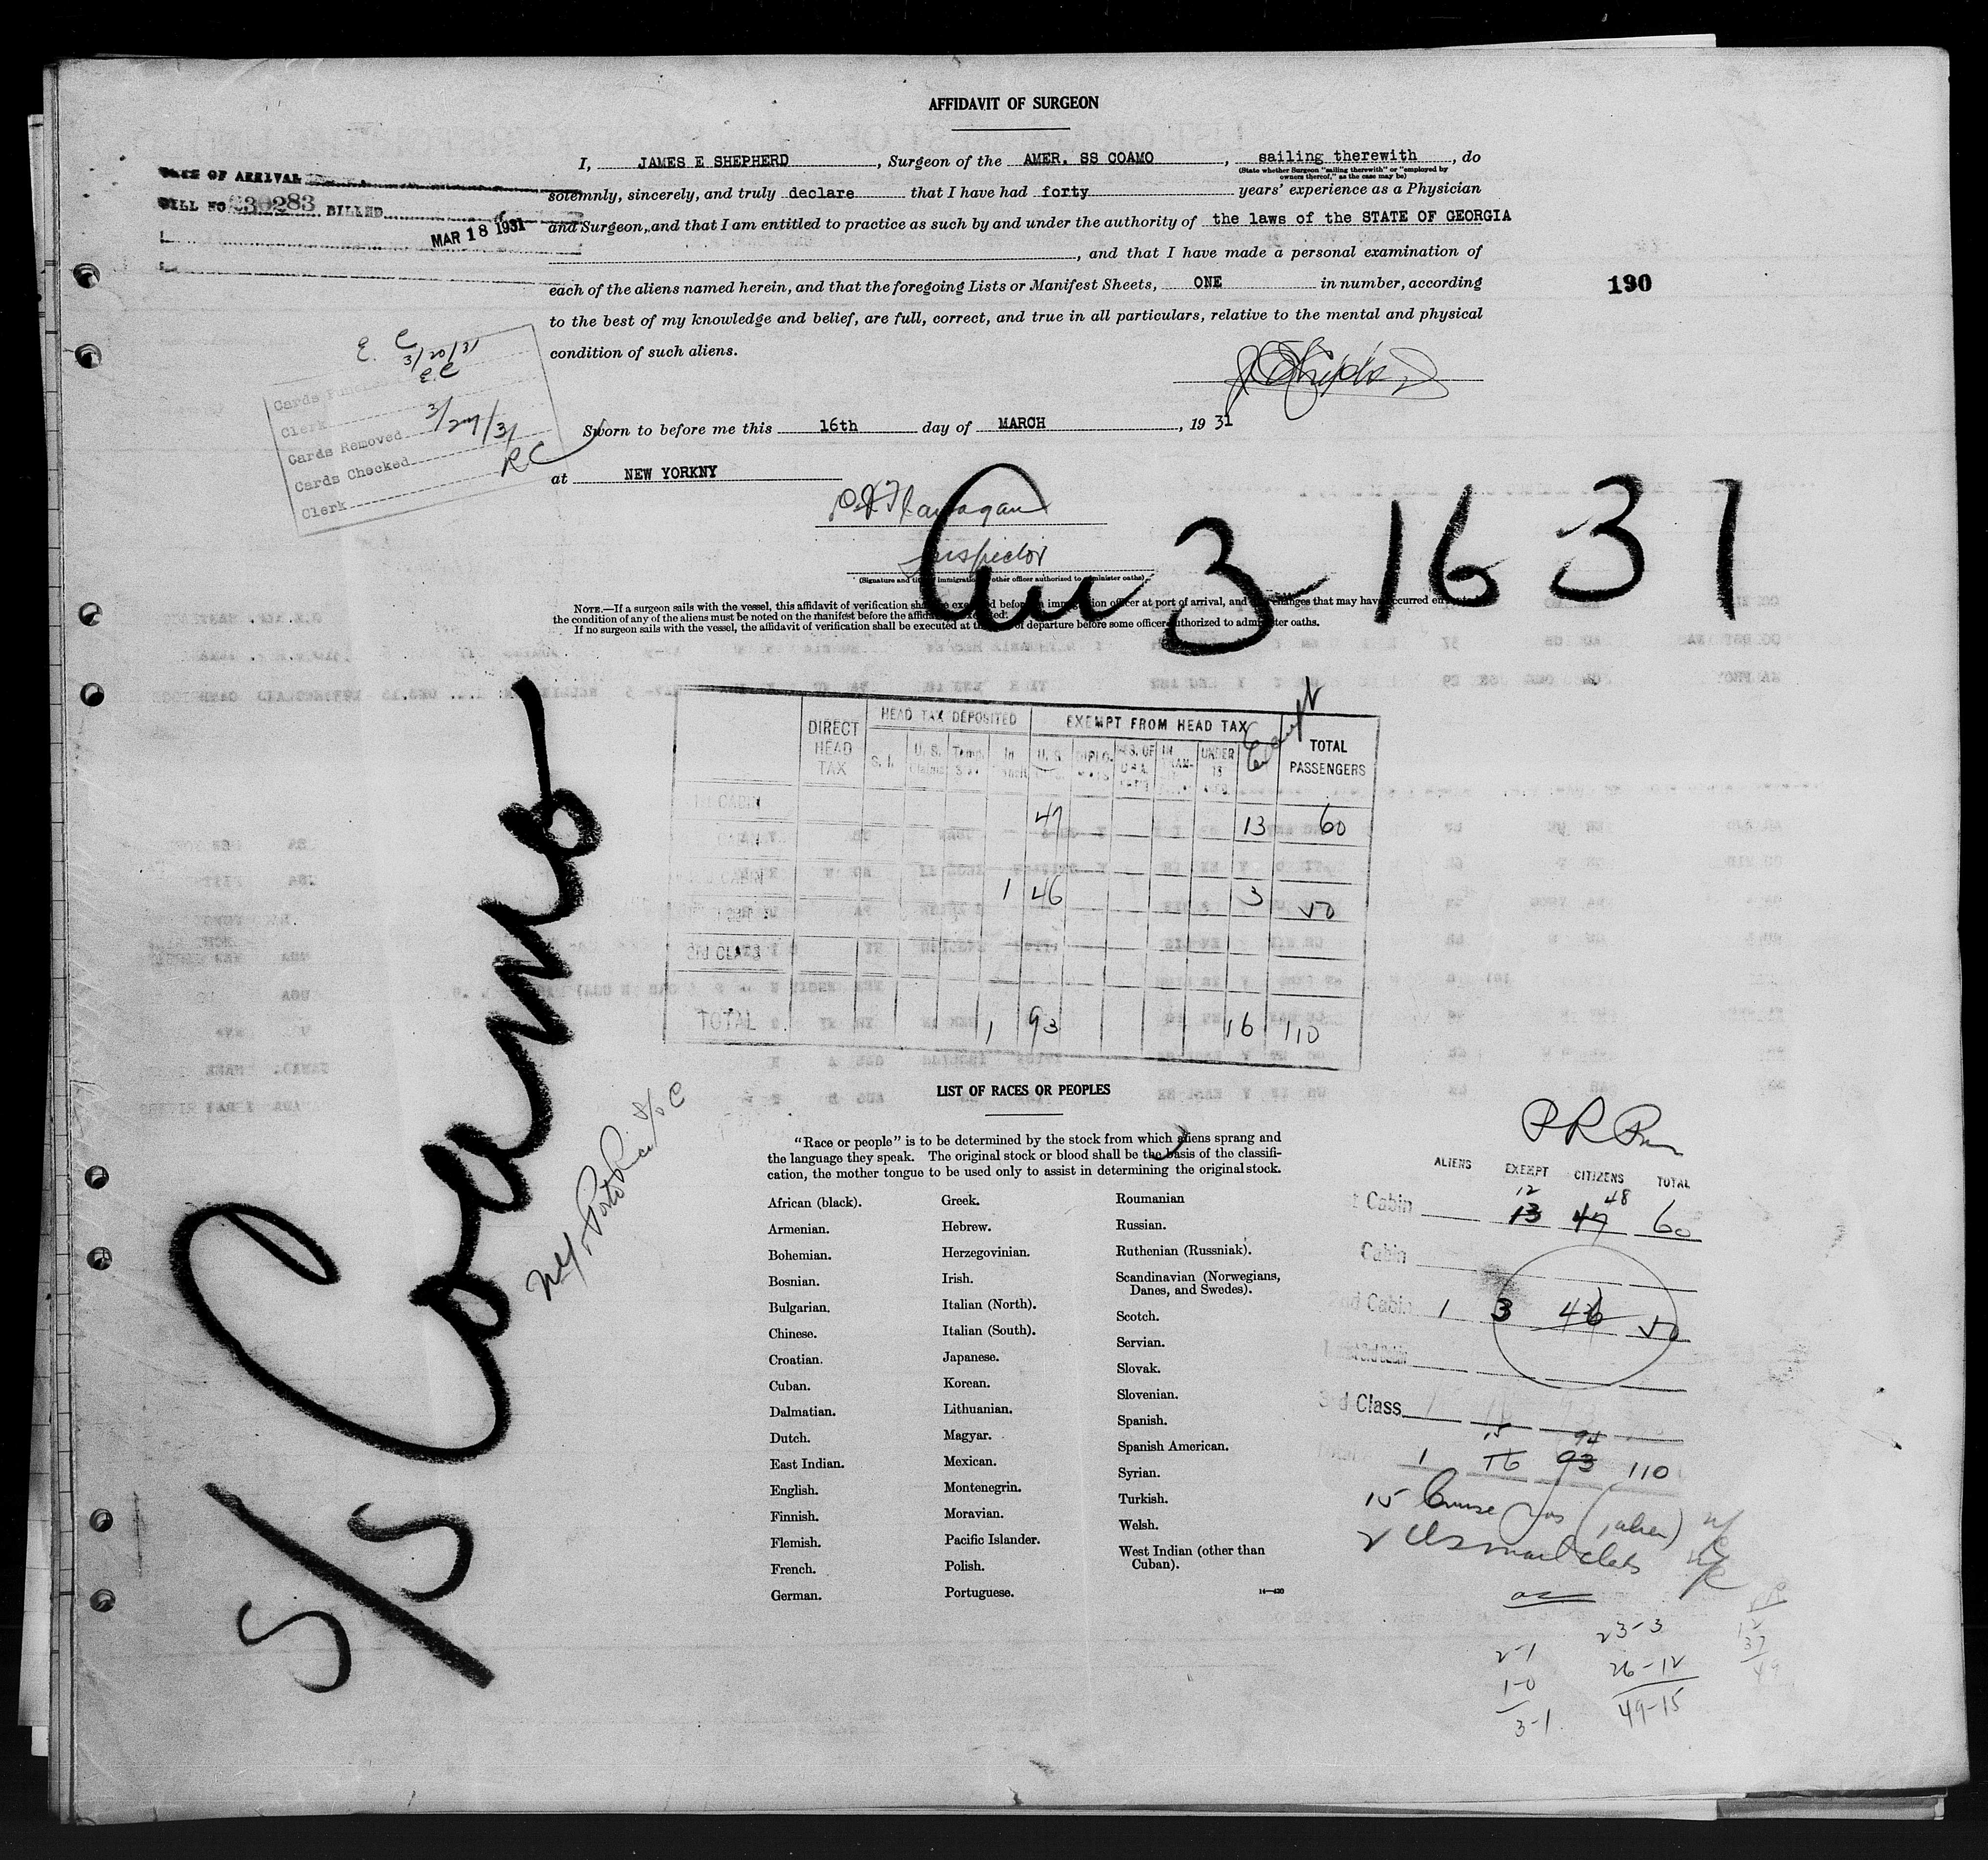 AFFIDAVIT OF SURGEON
I, JAMES E SHEPHERD, Surgeon of the AMER. SS COAMO, sailing therewith, do
(State whether Surgeon "sailing therewith" or "employed by
owners thereof," as the case may be)
solemnly, sincerely, and truly declare that I have had forty years' experience as a Physician
and Surgeon, and that I am entitled to practice as such by and under the authority of the laws of the STATE OF GEORGIA
, and that I have made a personal examination of
each of the aliens named herein, and that the foregoing Lists or Manifest Sheets, ONE in number, according
to the best of my knowledge and belief, are full, correct, and true in all particulars, relative to the mental and physical
condition of such aliens.
DATE OF ARRIVAL
BILL NO 230283 BILLED
MAR 18 1931
190
E. C
3/20/31
E.C
Cards
Clerk
Cards Removed 3/27/31
Cards Checked RC
Clerk
Sworn to before me this 16th day of MARCH, 19 31
at NEW YORKNY
Inspector
3 16 31
NOTE.—If a surgeon sails with the vessel, this affidavit of verification shall be executed before an immigration officer at port of arrival, and
the condition of any of the aliens must be noted on the manifest before the affidavit is executed.
If no surgeon sails with the vessel, the affidavit of verification shall be executed at the port of departure before some officer authorized to administer oaths.
S/S Coamo
DIRECT HEAD TAX
HEAD TAX DEPOSITED
EXEMPT FROM HEAD TAX
TOTAL PASSENGERS
S. I. U. S. Claims Temp. In U. S. DIPLO. UNDER
CABIN 47 13 60
1 46 3 50
3RD CLASS
TOTAL 1 93 16 110
LIST OF RACES OR PEOPLES
"Race or people" is to be determined by the stock from which aliens sprang and
the language they speak. The original stock or blood shall be the basis of the classifi-
cation, the mother tongue to be used only to assist in determining the original stock.
African (black).
Armenian.
Bohemian.
Bosnian.
Bulgarian.
Chinese.
Croatian.
Cuban.
Dalmatian.
Dutch.
East Indian.
English.
Finnish.
Flemish.
French.
German.
Greek.
Hebrew.
Herzegovinian.
Irish.
Italian (North).
Italian (South).
Japanese.
Korean.
Lithuanian.
Magyar.
Mexican.
Montenegrin.
Moravian.
Pacific Islander.
Polish.
Portuguese.
Roumanian
Russian.
Ruthenian (Russniak).
Scandinavian (Norwegians,
Danes, and Swedes).
Scotch.
Servian.
Slovak.
Slovenian.
Spanish.
Spanish American.
Syrian.
Turkish.
Welsh.
West Indian (other than
Cuban).
ALIENS EXEMPT CITIZENS TOTAL
12 48
Cabin 13 47 60
Cabin
2nd Cabin 1 3 46 50
3rd Class
15 94
1 16 93 110
2-1
1-0
3-1
23-3
26-12
49-15